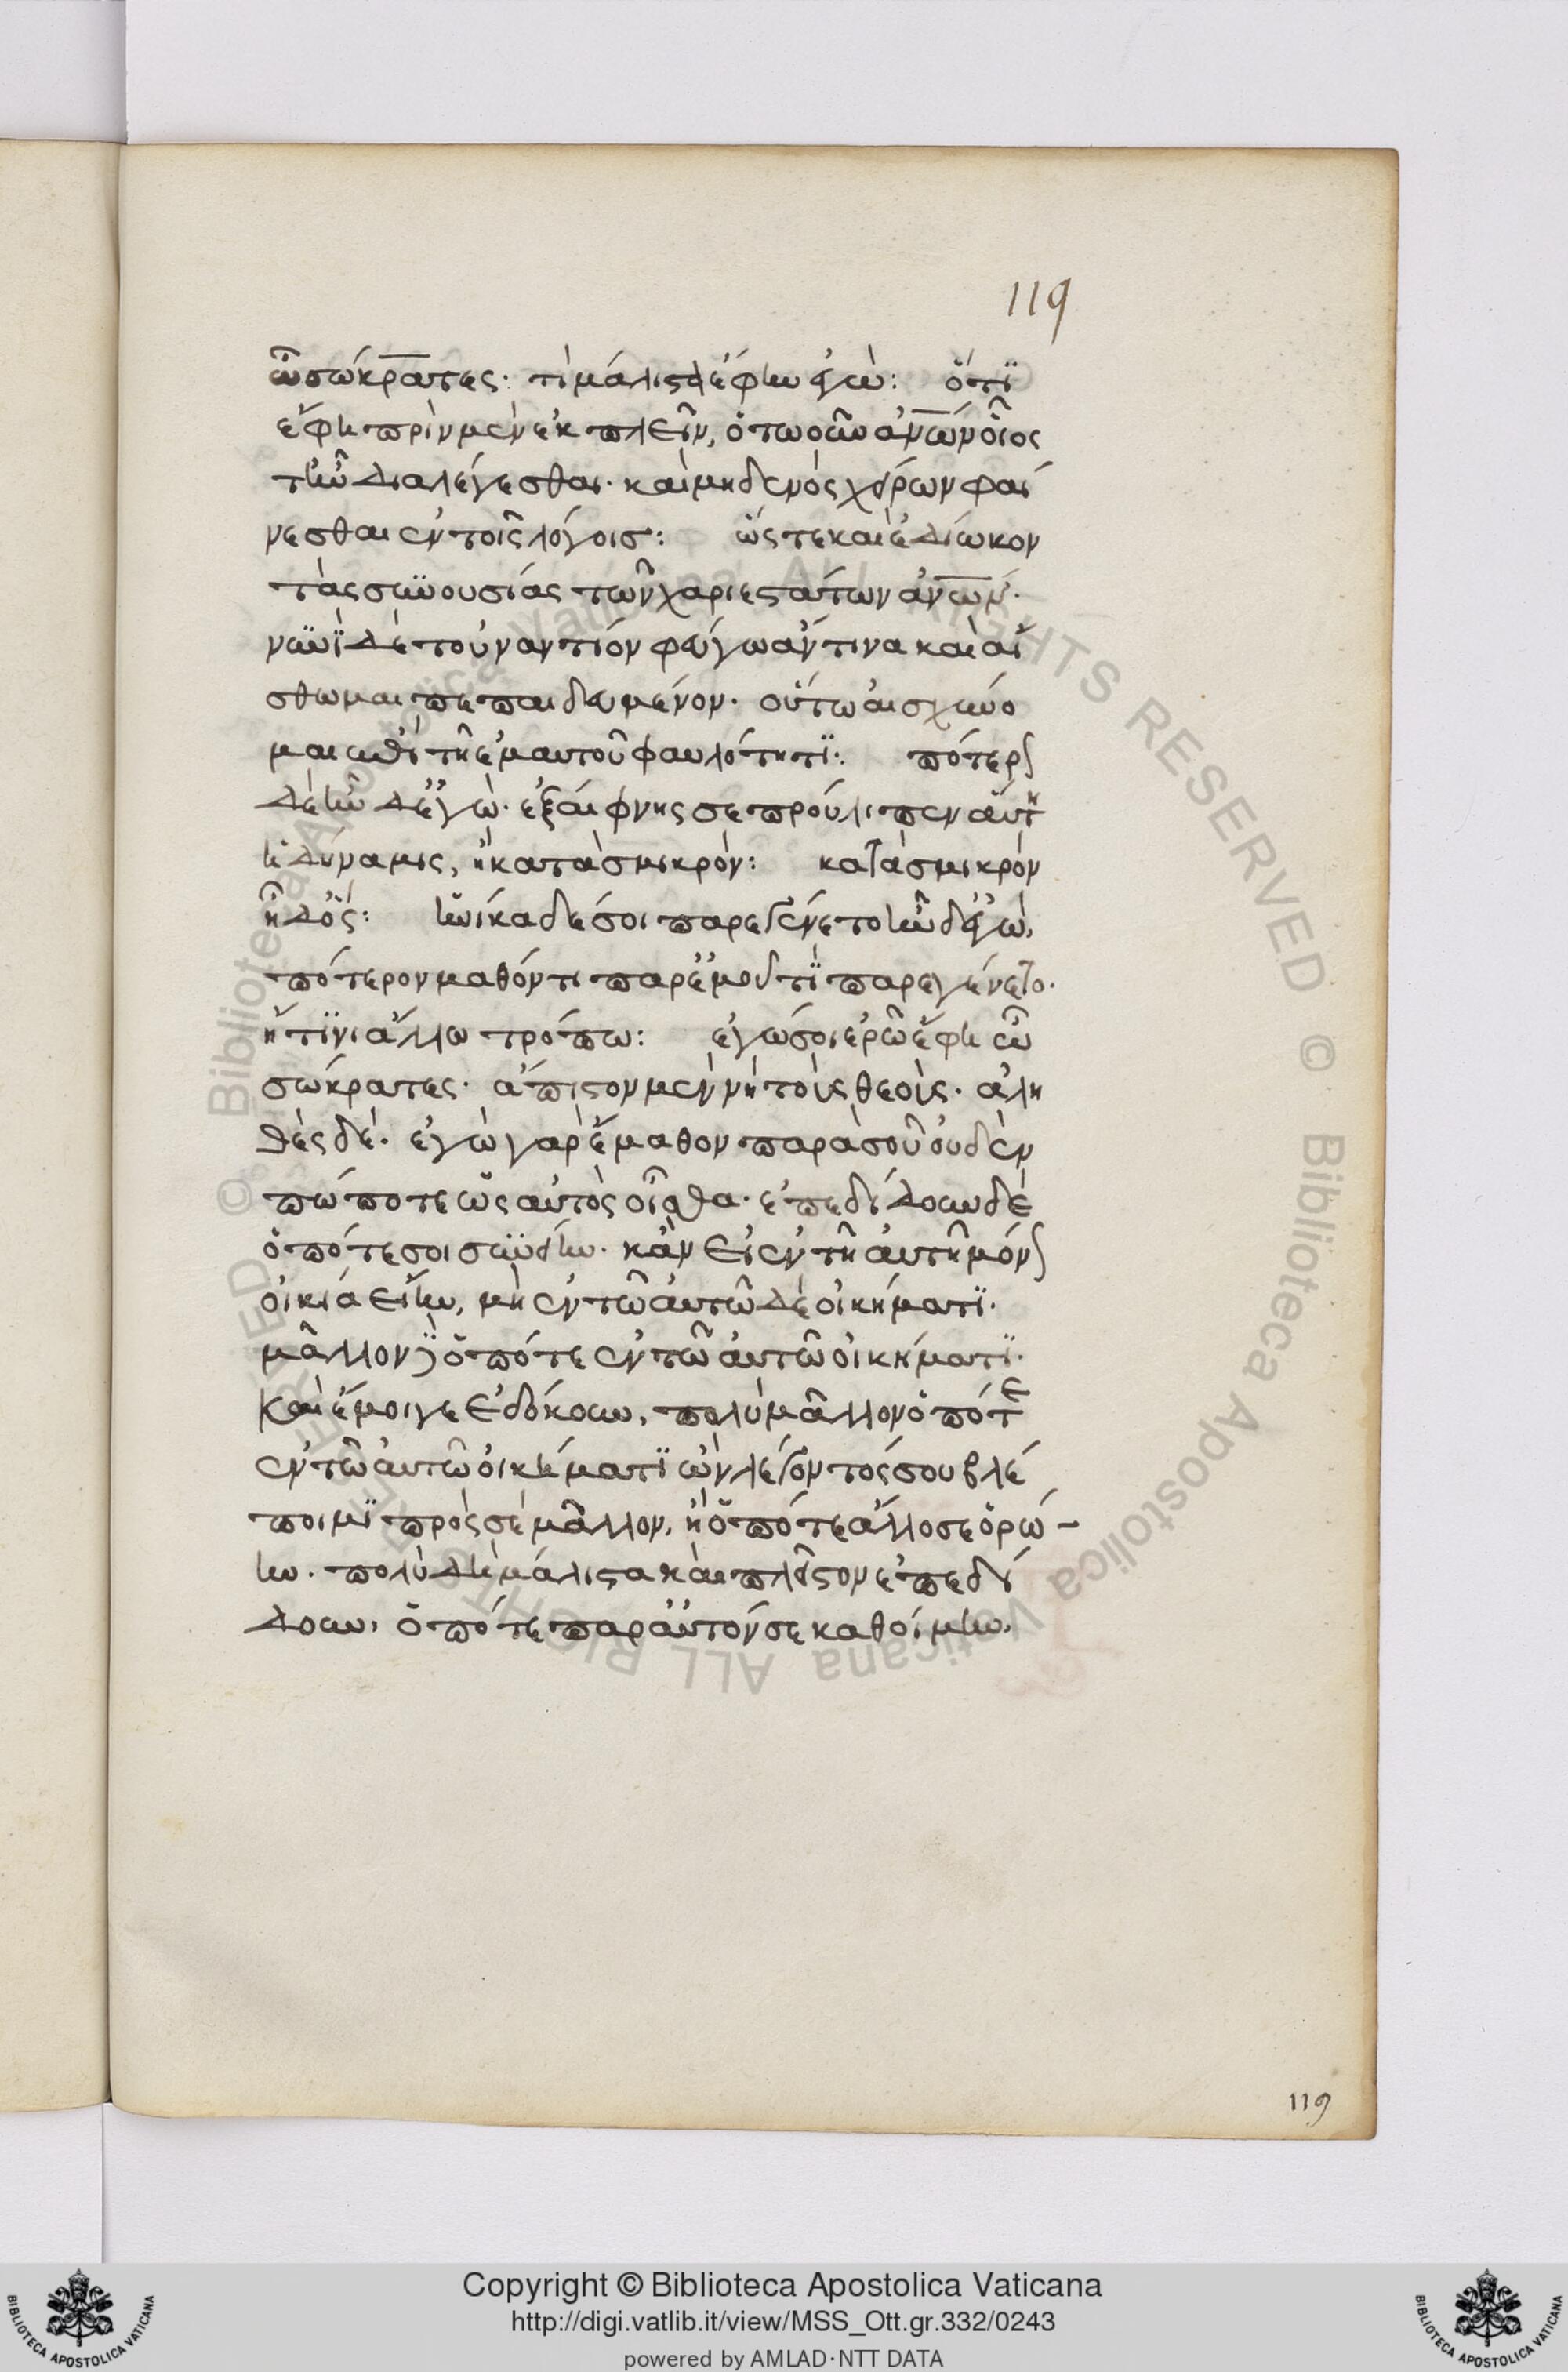 119
ὦ σώκρατες· τί μάλιστα ἔφην ἐγώ: ὅτι
ἔφη πρὶν μὲν ἐκπλεῖν, ὁτωοῦν ἀνων οἷος
τ' ἦν διαλέγεσθαι· καὶ μηδενὸς χείρων φαί
νεσθαι ἐν τοῖς λόγοισ: ὥστε καὶ ἐδίωκον
τὰς συνουσίας τῶν χαριεστάτων ἀνων·
νυνῒ δὲ τοὐναντίον φεύγω ἄν τινα καὶ αἴ
σθωμαι πεπαιδευμένον· οὕτω αἰσχύνο
μαι ἐπὶ τῆ ἐμαυτοῦ φαυλότητϊ: πότερ
δὲ ἦν δ' ἐγώ· ἐξαίφνης σε προύλιπεν αὕτη
ἡ δύναμις, ἢ κατὰ σμικρόν: κατὰ σμικρὸν
ἦ δ' ὅς: ἡνίκα δέ σοι παρεγένετο ἦν δ' ἐγώ,
πότερον μαθόντι παρ' ἐμοῦ τϊ παρεγένετο·
ἤ τινι ἄλλω τρόπω: ἐγώ σοι ἐρῶ ἔφη ὦ
σώκρατες· ἄπιστον μὲν νὴ τοὺς θεούς· ἀλη
θὲς δέ· ἐγὼ γὰρ ἔμαθον παρὰ σοῦ οὐδὲν
πώποτε ὡς αὐτὸς οἶσθα· ἐπεδίδουν δὲ
ὁπότε σοι συνείην· κἂν εἰ ἐν τῆ αὐτῆ μόν
οἰκία εἴην, μὴ ἐν τῶ αὐτῶ δὲ οἰκήματϊ·
μᾶλλον δ' ὁπότε ἐν τῶ αὐτῶ οἰκήματϊ·
καὶ ἔμοιγε ἐδόκουν, πολὺ μᾶλλον ὁπότε
ἐν τῶ αὐτῶ οἰκήματϊ ὢν λέγοντός σου βλέ
ποιμϊ πρὸς σὲ μᾶλλον, ἢ ὁπότε ἄλλοσε ὁρώ-
ην. πολὺ δὴ μάλιστα καὶ πλεῖστον ἐπεδί
δουν, ὁπότε παρ' αὐτόν σε καθοίμην,
119
Copyright © Biblioteca Apostolica Vaticana
http://digi.vatlib.it/view/MSS_Ott.gr.332/0243
powered by AMLAD·NTT DATA